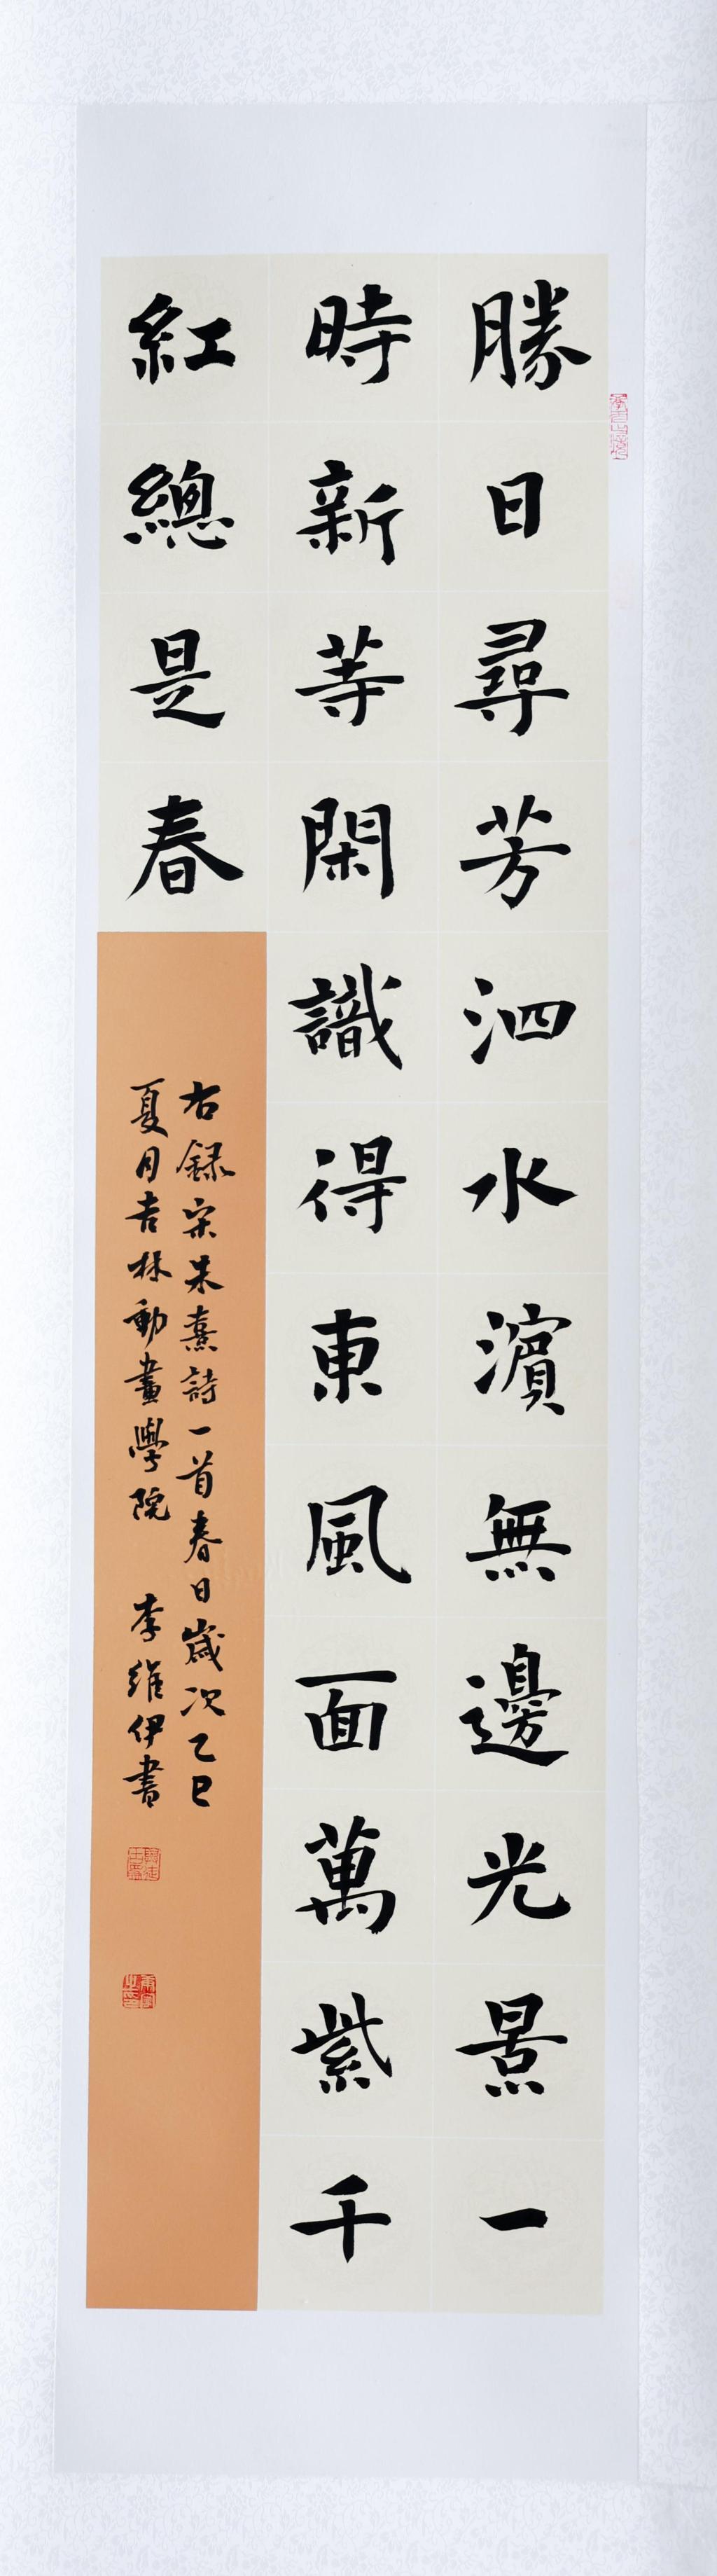 勝日尋芳泗水濵無邊光景一
時新等閑識得東風面萬紫千
紅總是春
右録宋朱熹詩一首春日歲次乙巳
夏月吉林動畫學院 李維伊書